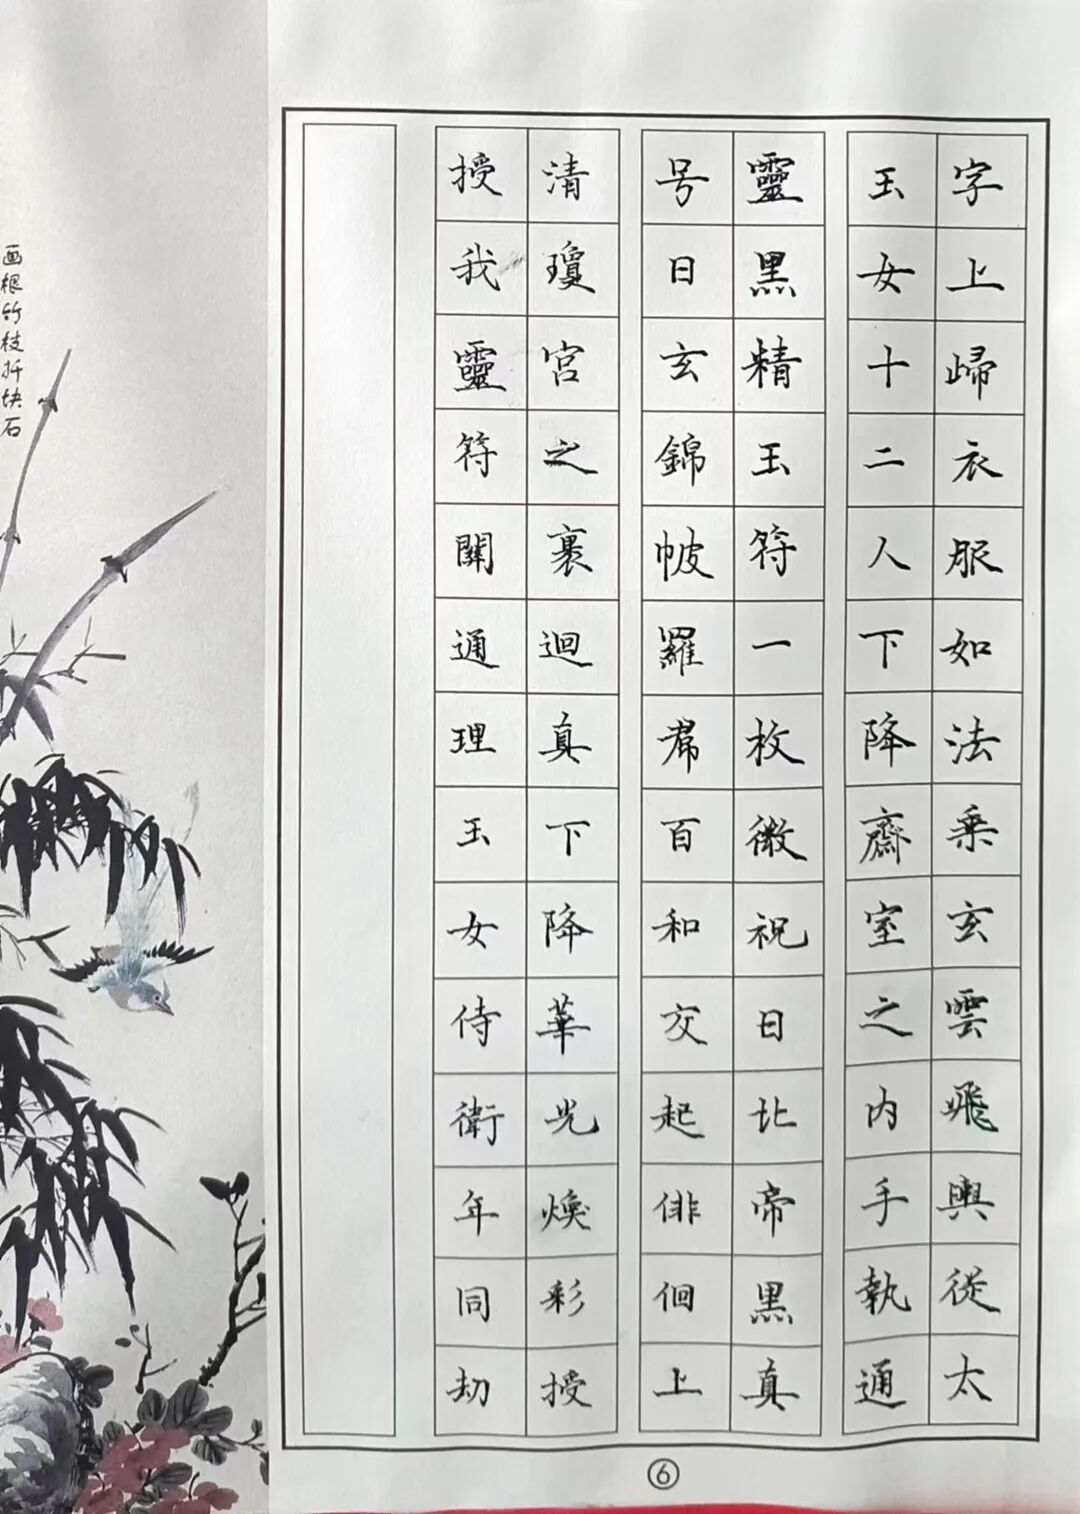 字上歸衣服如法乘玄雲飛輿從太
玉女十二人下降齋室之內手執通
靈黑精玉符一枚微祝日北帝黑真
号日玄錦帔羅帬百和交起俳佪上
清瓊宮之裏迴真下降華光煥彩授
授我靈符關通理玉女侍衛年同劫
⑥
画根竹枝折块石